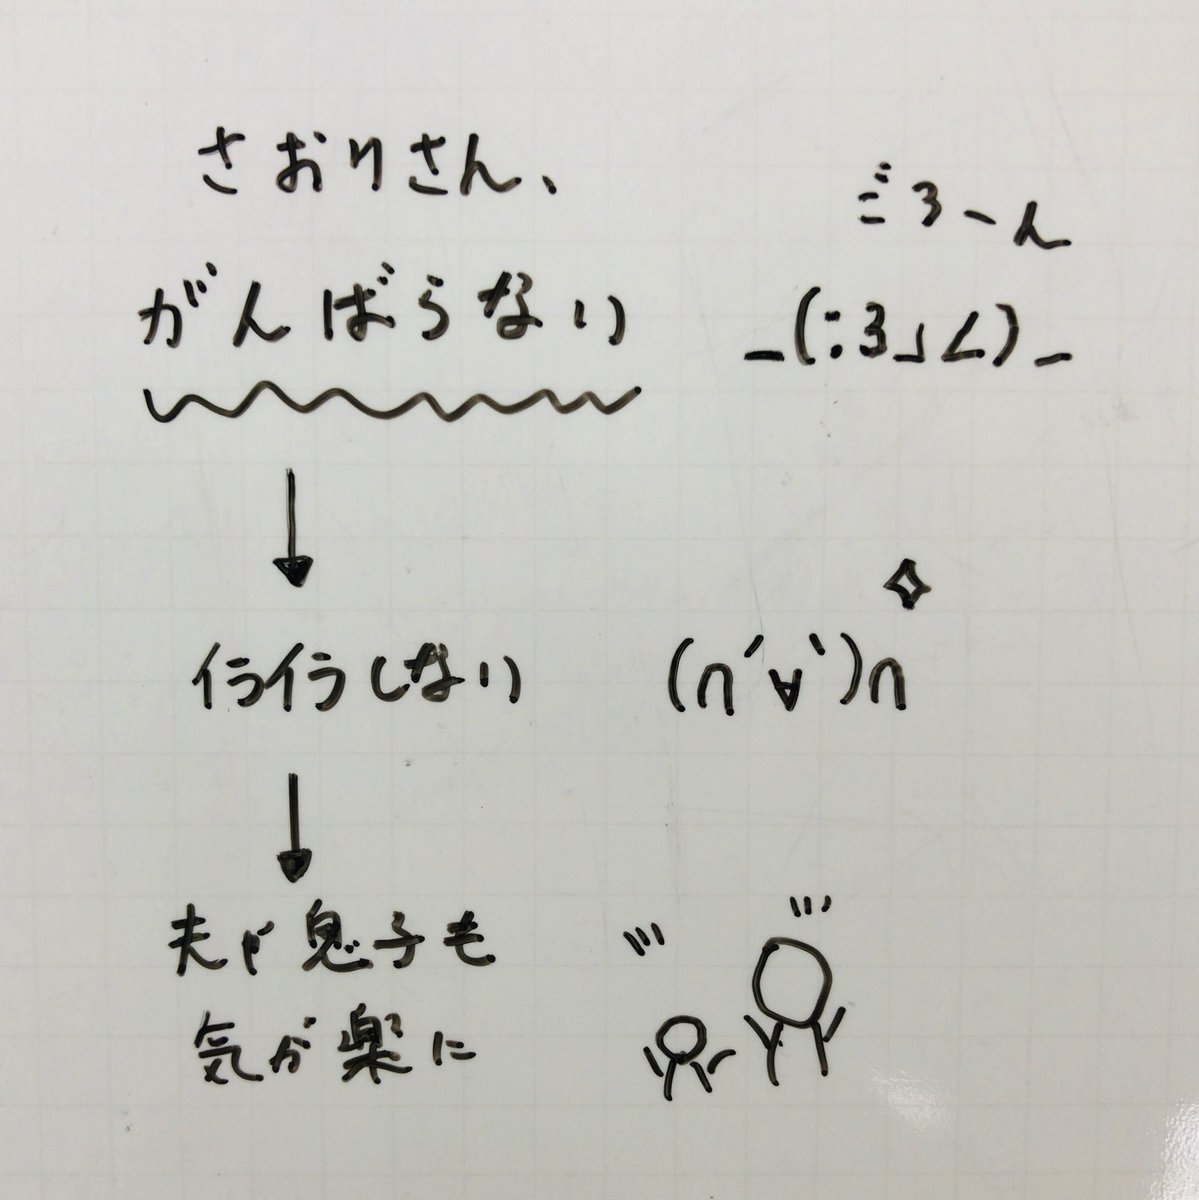 さおりさん、
ごろーん
がんばらない
_(:3」∠)_
イライラしない
(n´∀`)n
夫や息子も
気が楽に